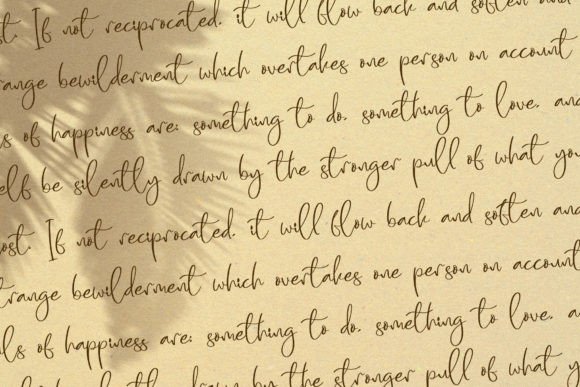 st. If not reciprocated, it will flow back and soften and
range bewilderment which overtakes one person on account
ls of happiness are: something to do, something to love, and
elf be silently drawn by the stronger pull of what you
ost. If not reciprocated, it will flow back and soften and
trange bewilderment which overtakes one person on account
als of happiness are: something to do, something to love, and
drawn by the stronger pull of what y